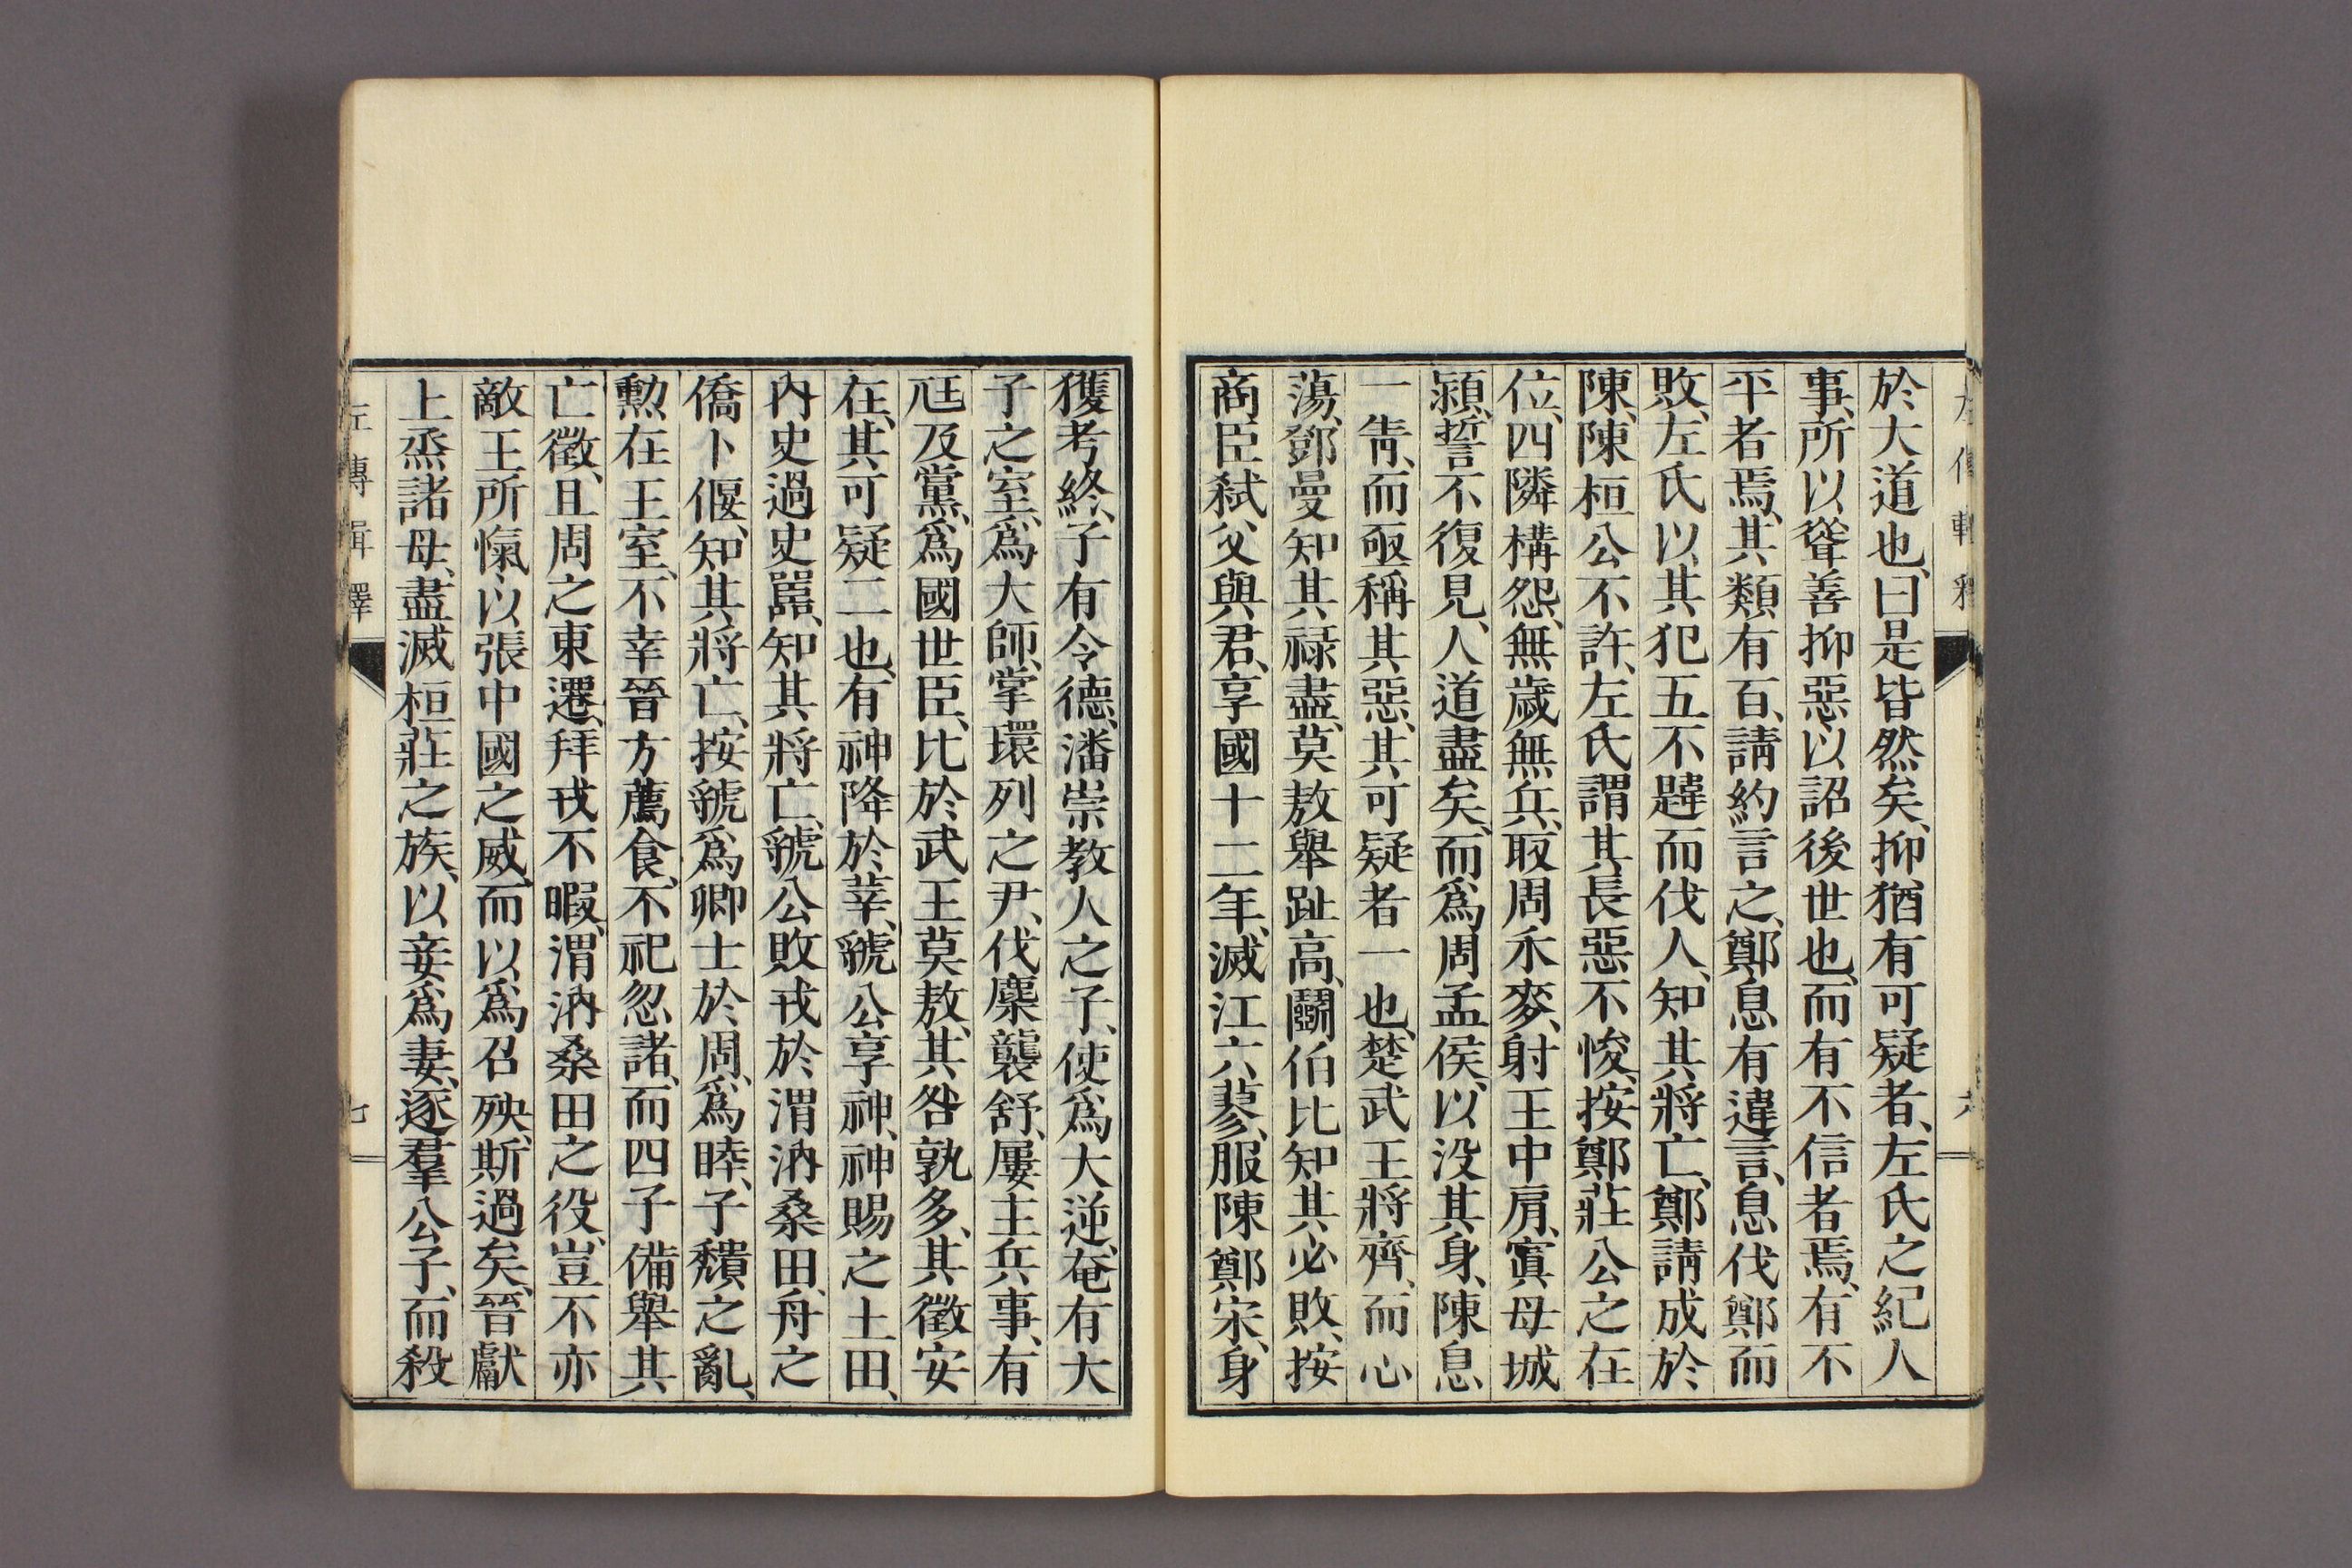 於大道也、曰是皆然矣、抑猶有可疑者、左氏之紀人
事、所以聳善抑惡、以詔後世也、而有不信者焉、有不
平者焉、其類有百、請約言之、鄭息有違言、息伐鄭而
敗、左氏以其犯五不韙而伐人、知其將亡、鄭請成於
陳、陳桓公不許、左氏謂其長惡不悛、按鄭莊公之在
位、四隣構怨、無歲無兵、取周禾麥、射王中肩、寘母城
潁、誓不復見、人道盡矣、而爲周孟侯、以没其身、陳息
一眚、而亟稱其惡、其可疑者一也、楚武王將齊、而心
蕩、鄧曼知其祿盡、莫敖舉趾高、鬭伯比知其必敗、按
商臣弑父與君、享國十二年、滅江六蓼、服陳鄭宋、身
獲考終、子有令德、潘崇教人之子、使爲大逆、奄有大
子之室、爲大師、掌環列之尹、伐麇襲舒、屢主兵事、有
尫及黨、爲國世臣、比於武王莫敖、其咎孰多、其徵安
在、其可疑二也、有神降於莘、虢公享神、神賜之土田、
內史過史嚚、知其將亡、虢公敗戎於渭汭桑田、舟之
僑卜偃、知其將亡、按虢爲卿士於周、爲睦、子頹之亂、
勲在王室、不幸晉方薦食、不祀忽諸、而四子備舉其
亡徵、且周之東遷、拜戎不暇、渭汭桑田之役、豈不亦
敵王所愾、以張中國之威、而以爲召殃、斯過矣、晉獻
上烝諸母、盡滅桓莊之族、以妾爲妻、逐羣公子、而殺
左傳輯釋
七